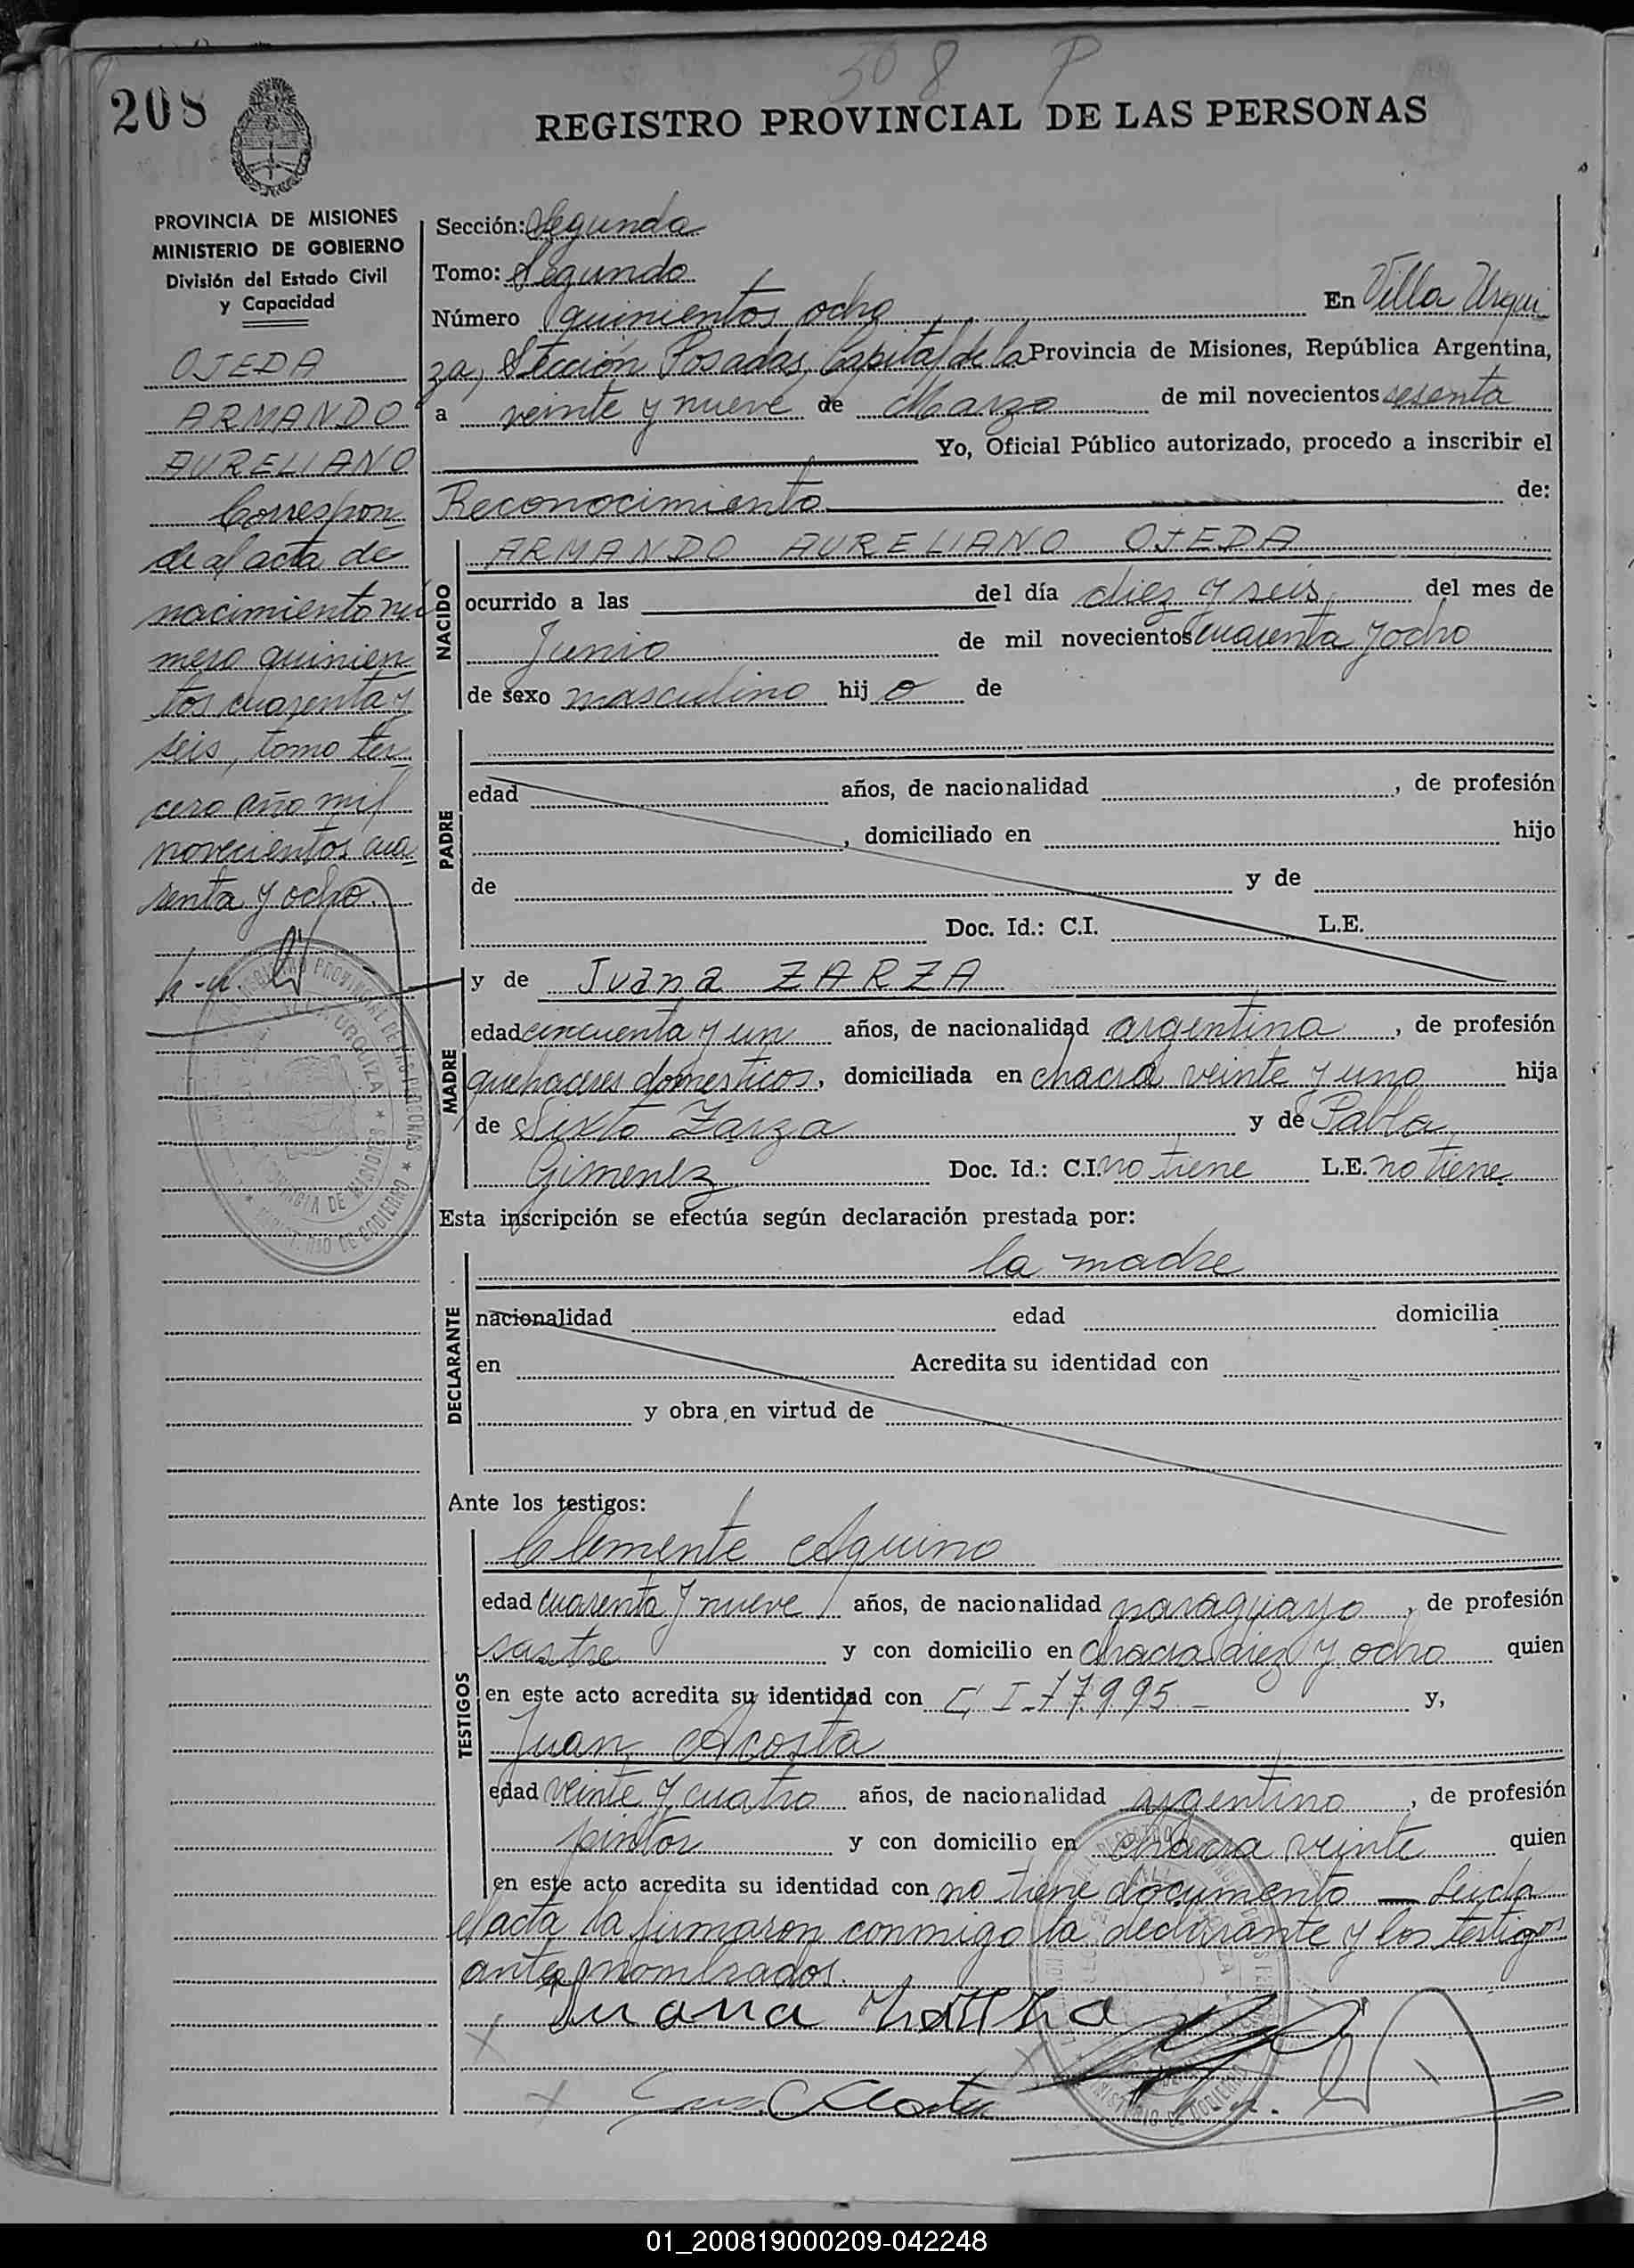 508 P
208
REGISTRO PROVINCIAL DE LAS PERSONAS
PROVINCIA DE MISIONES
MINISTERIO DE GOBIERNO
División del Estado Civil
y Capacidad
OJEDA
ARMANDO
AURELIANO
Correspon
de al acta de
nacimiento nú
mero quinien
tos cuarenta y
seis, tomo ter
cero año mil
novecientos cua
renta y ocho.
Sección: Segunda
Tomo: Segundo
Número quinientos ocho En Villa Urqui
za, Sección Posadas, Capital de la Provincia de Misiones, República Argentina,
a veinte y nueve de Marzo de mil novecientos sesenta
Yo, Oficial Público autorizado, procedo a inscribir el
Reconocimiento de:
NACIDO
ARMANDO AURELIANO OJEDA
ocurrido a las del día diez y seis, del mes de
Junio de mil novecientos cuarenta y ocho
de sexo masculino hijo de
PADRE
edad años, de nacionalidad , de profesión
, domiciliado en hijo
de y de
Doc. Id.: C.I. L.E.
MADRE
y de Juana ZARZA
edad cincuenta y un años, de nacionalidad argentina, de profesión
quehaceres domesticos, domiciliada en chacra veinte y uno hija
de Sixto Zarza y de Pabla
Gimenez Doc. Id.: C.I. no tiene L.E. no tiene
Esta inscripción se efectúa según declaración prestada por:
DECLARANTE
la madre
nacionalidad edad domicilia
en Acredita su identidad con
y obra en virtud de
Ante los testigos:
TESTIGOS
Clemente Aquino
edad cuarenta y nueve años, de nacionalidad paraguayo, de profesión
sastre y con domicilio en chacra diez y ocho quien
en este acto acredita su identidad con C I 77995 y,
Juan Acosta
edad veinte y cuatro años, de nacionalidad argentino, de profesión
pintor y con domicilio en chacra veinte quien
en este acto acredita su identidad con no tiene documento — Leida
el acta la firmaron conmigo la declarante y los testigos
antes nombrados.
Juana Zarza
01_200819000209-042248